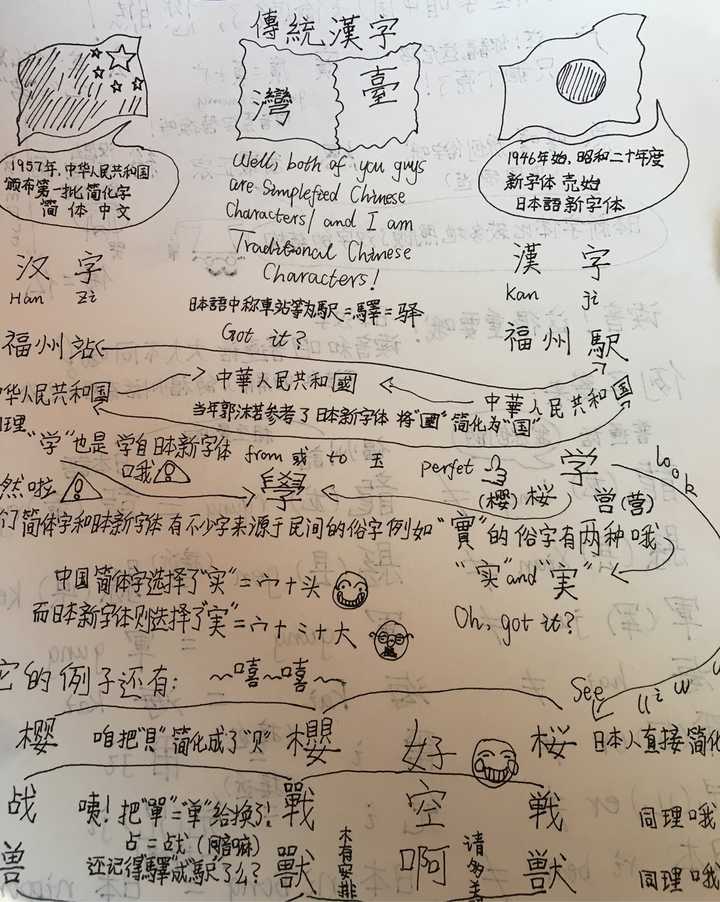 傳統漢字
灣
臺
1957年,中华人民共和国
颁布第一批简化字
简 体 中文
Well, both of you guys
are Simplefied Chinese
Characters! and I am
Traditional Chinese
Characters!
1946年始,昭和二十年度
新字体 売始
日本語新字体
汉 字
Han Zi
漢 字
Kan ji
日本語中称車站等为駅=驛=驿
Got it?
福州站
福州 駅
华人民共和国
中華人民共和國
中華人民共和国
当年郭沫若参考了日本新字体 将"國"简化为"国"
"学"也是 学自日本新字体
口我
from 或 to 玉
perfet
学
look
然啦
學
(樱) 桜
営(营)
们简体字和日本新字体 有不少字来源于民间的俗字 例如"實"的俗字有两种哦
"实"and"実"
中国简体字选择了"实"=宀+头
而日本新字体则选择了"実"=宀+三+大
Oh, got it?
它的例子还有:
~嘻~嘻~
See
樱
咱把"貝"简化成了"贝"
櫻
好
桜
日本人直接简化
战
咦!把"單"="单"给换了!
戰
空
戦
同理哦
占=战
还记得驛成"駅"了么?
兽
獸
啊
獣
同理哦
木有安排
请多关